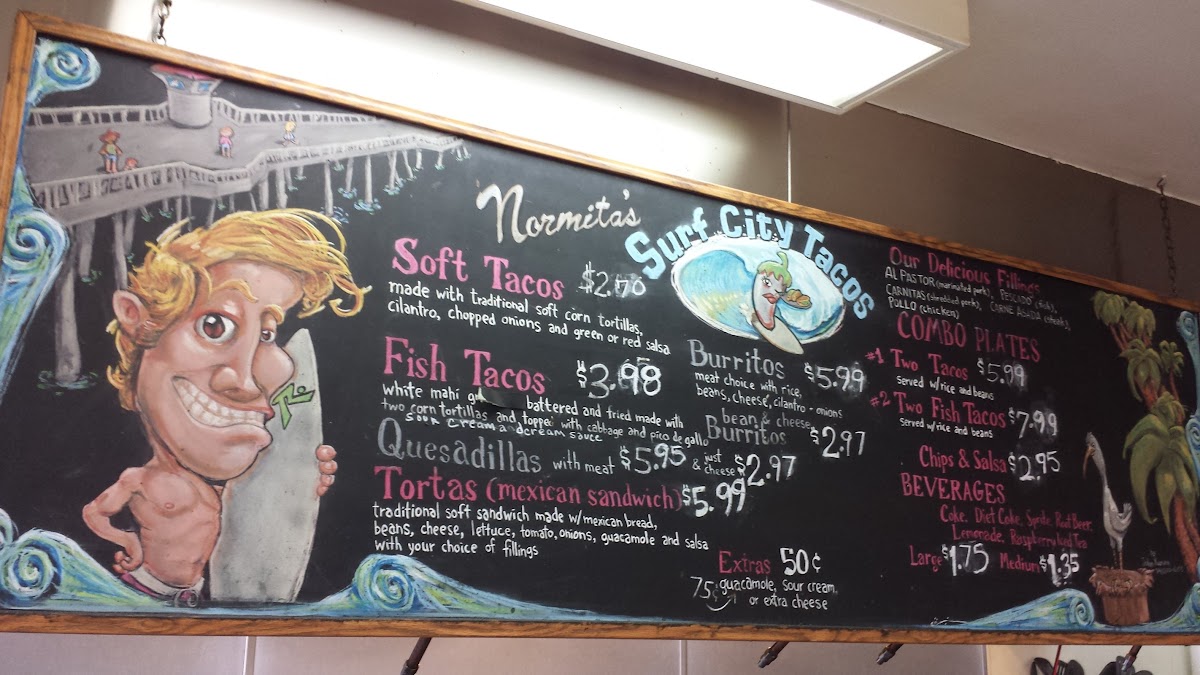 Normita's
Surf City Tacos
Soft Tacos
made with traditional soft corn tortillas,
cilantro, chopped onions and green or red salsa
Fish Tacos $3.98
white mahi battered and fried made with
two corn tortillas and topped with cabbage and pico de gallo
sour cream and cream sauce
Quesadillas with meat $5.95 & just cheese $2.97
Tortas (mexican sandwich) $5.99
traditional soft sandwich made w/mexican bread,
beans, cheese, lettuce, tomato, onions, guacamole and salsa
with your choice of fillings
Burritos $5.99
meat choice with rice,
beans, cheese, cilantro - onions
bean & cheese
Burritos $2.97
Extras 50¢
75¢ guacamole, sour cream,
or extra cheese
Our Delicious Fillings
AL PASTOR (marinated pork), PESCADO (fish),
CARNITAS (shredded pork), CARNE ASADA (steak),
POLLO (chicken)
COMBO PLATES
#1 Two Tacos $5.99
served w/rice and beans
#2 Two Fish Tacos $7.99
served w/rice and beans
Chips & Salsa $2.95
BEVERAGES
Coke, Diet Coke, Sprite, Root Beer,
Lemonade, Raspberry Iced Tea
Large $1.75 Medium $1.35